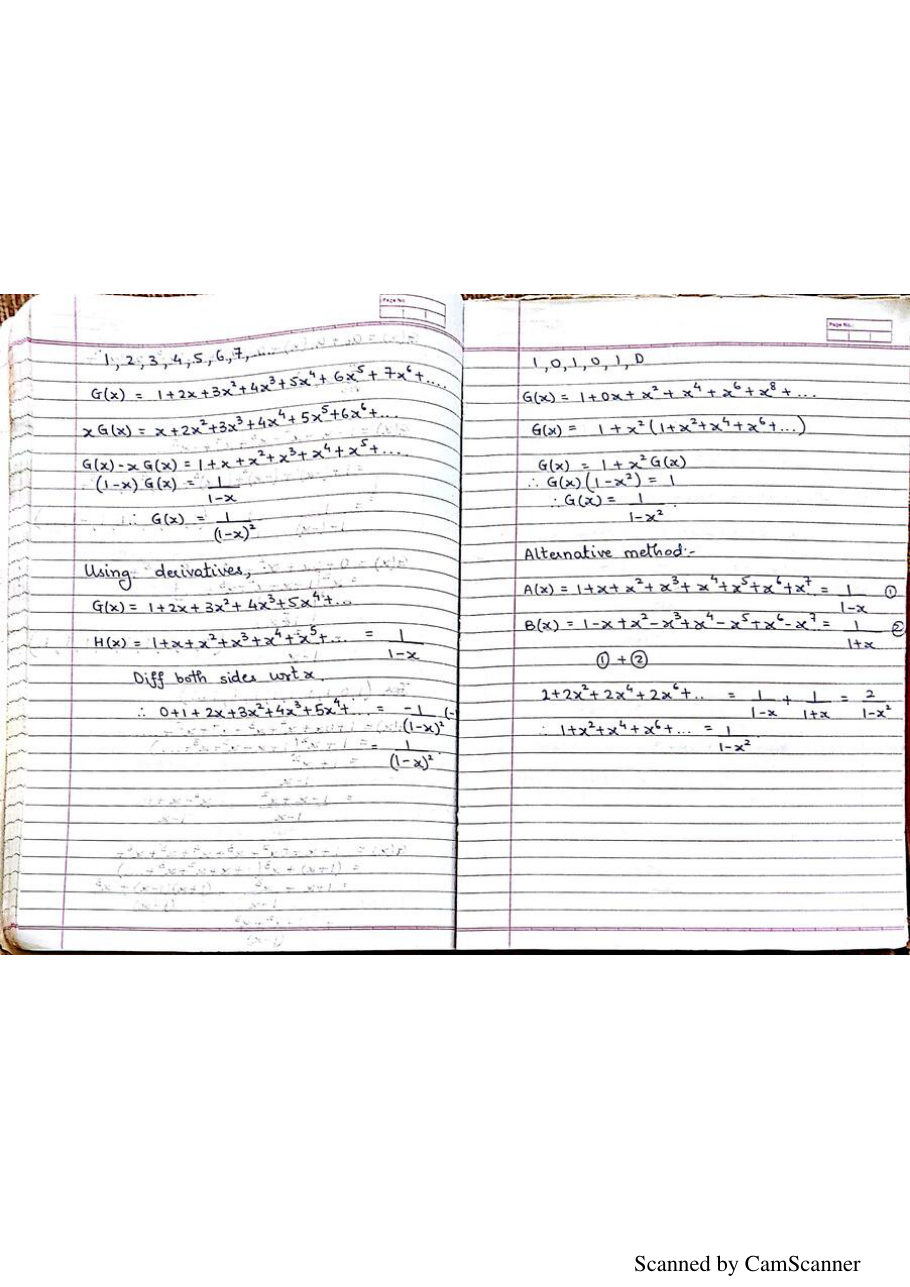 Page No.
1, 2, 3, 4, 5, 6, 7, ....
G(x) = 1+2x+3x²+4x³+5x⁴+6x⁵+7x⁶+....
xG(x) = x+2x²+3x³+4x⁴+5x⁵+6x⁶+...
G(x)-xG(x) = 1+x+x²+x³+x⁴+x⁵+....
(1-x)G(x) = 1/(1-x)
∴ G(x) = 1/(1-x)²
Using derivatives,
G(x) = 1+2x+3x²+4x³+5x⁴+...
H(x) = 1+x+x²+x³+x⁴+x⁵+... = 1/(1-x)
Diff both sides wrt x.
∴ 0+1+2x+3x²+4x³+5x⁴+... = -1/(1-x)² (-
= 1/(1-x)²
Page No.
1, 0, 1, 0, 1, 0
G(x) = 1+0x+x²+x⁴+x⁶+x⁸+...
G(x) = 1+x²(1+x²+x⁴+x⁶+...)
G(x) = 1+x²G(x)
∴ G(x)(1-x²) = 1
∴ G(x) = 1/(1-x²)
Alternative method:-
A(x) = 1+x+x²+x³+x⁴+x⁵+x⁶+x⁷ = 1/(1-x) ①
B(x) = 1-x+x²-x³+x⁴-x⁵+x⁶-x⁷ = 1/(1+x) ②
①+②
2+2x²+2x⁴+2x⁶+.. = 1/(1-x) + 1/(1+x) = 2/(1-x²)
∴ 1+x²+x⁴+x⁶+... = 1/(1-x²)
Scanned by CamScanner